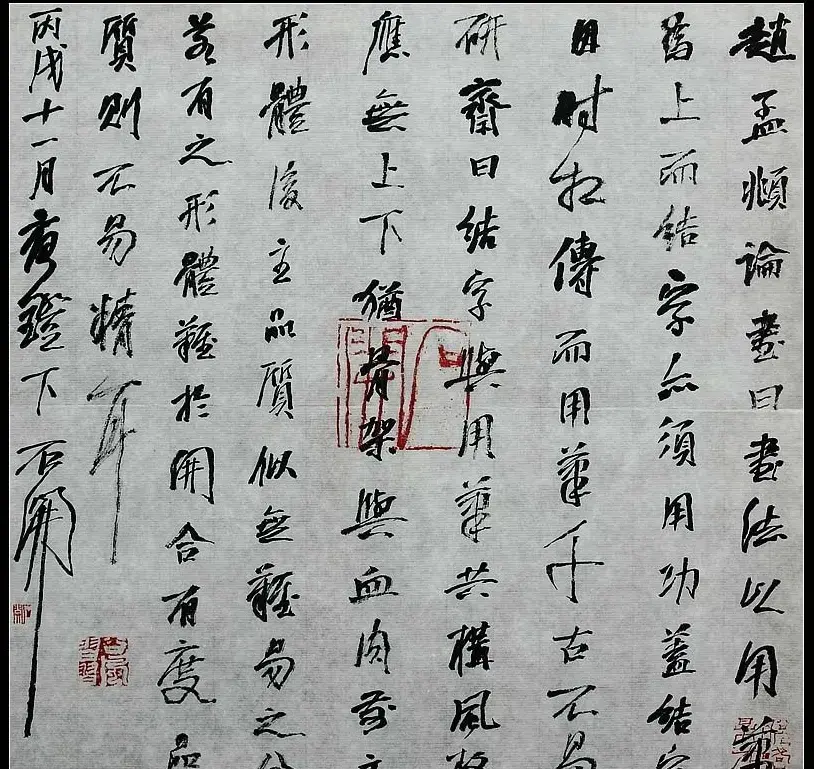 趙孟頫論書曰書法以用筆
為上而結字亦須用功蓋結字
因時相傳而用筆千古不易
研齋曰結字與用筆共構風
應無上下猶骨架與血肉前主
形體後主品質似無難易之分
若有之形體難於開合有度品
質則不易精耳
丙戌十一月夜鐙下石開